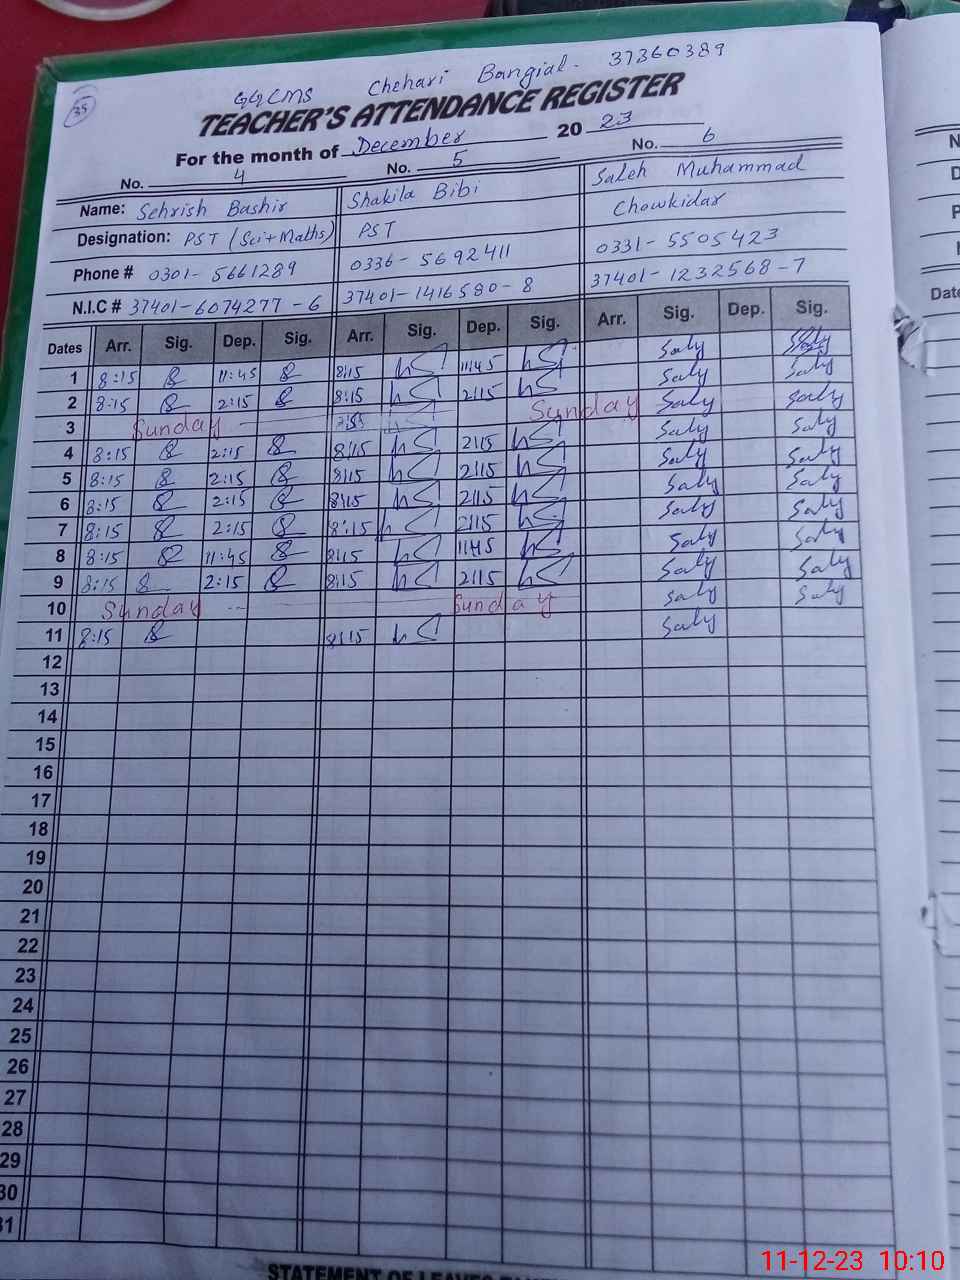 35
GGCMS Chehari Bangial. 37360389
TEACHER'S ATTENDANCE REGISTER
For the month of December 20 23
No. 4 No. 5 No. 6
Name: Sehrish Bashir Shakila Bibi Saleh Muhammad
Designation: PST (Sci+Maths) PST Chowkidar
Phone # 0301-5661289 0336-5692411 0331-5505423
N.I.C # 37401-6074277-6 37401-1416580-8 37401-1232568-7
Dates Arr. Sig. Dep. Sig. Arr. Sig. Dep. Sig. Arr. Sig. Dep. Sig.
1 8:15 11:45 8:15 11:45 Saly Saly
2 8:15 2:15 8:15 2:15 Saly Saly
3 Sunday Sunday Saly Saly
4 8:15 2:15 8:15 2:15 Saly Saly
5 8:15 2:15 8:15 2:15 Saly Saly
6 8:15 2:15 8:15 2:15 Saly Saly
7 8:15 2:15 8:15 2:15 Saly Saly
8 8:15 11:45 8:15 11:45 Saly Saly
9 8:15 2:15 8:15 2:15 Saly Saly
10 Sunday Sunday Saly Saly
11 8:15 8:15 Saly
12
13
14
15
16
17
18
19
20
21
22
23
24
25
26
27
28
29
30
31
11-12-23 10:10